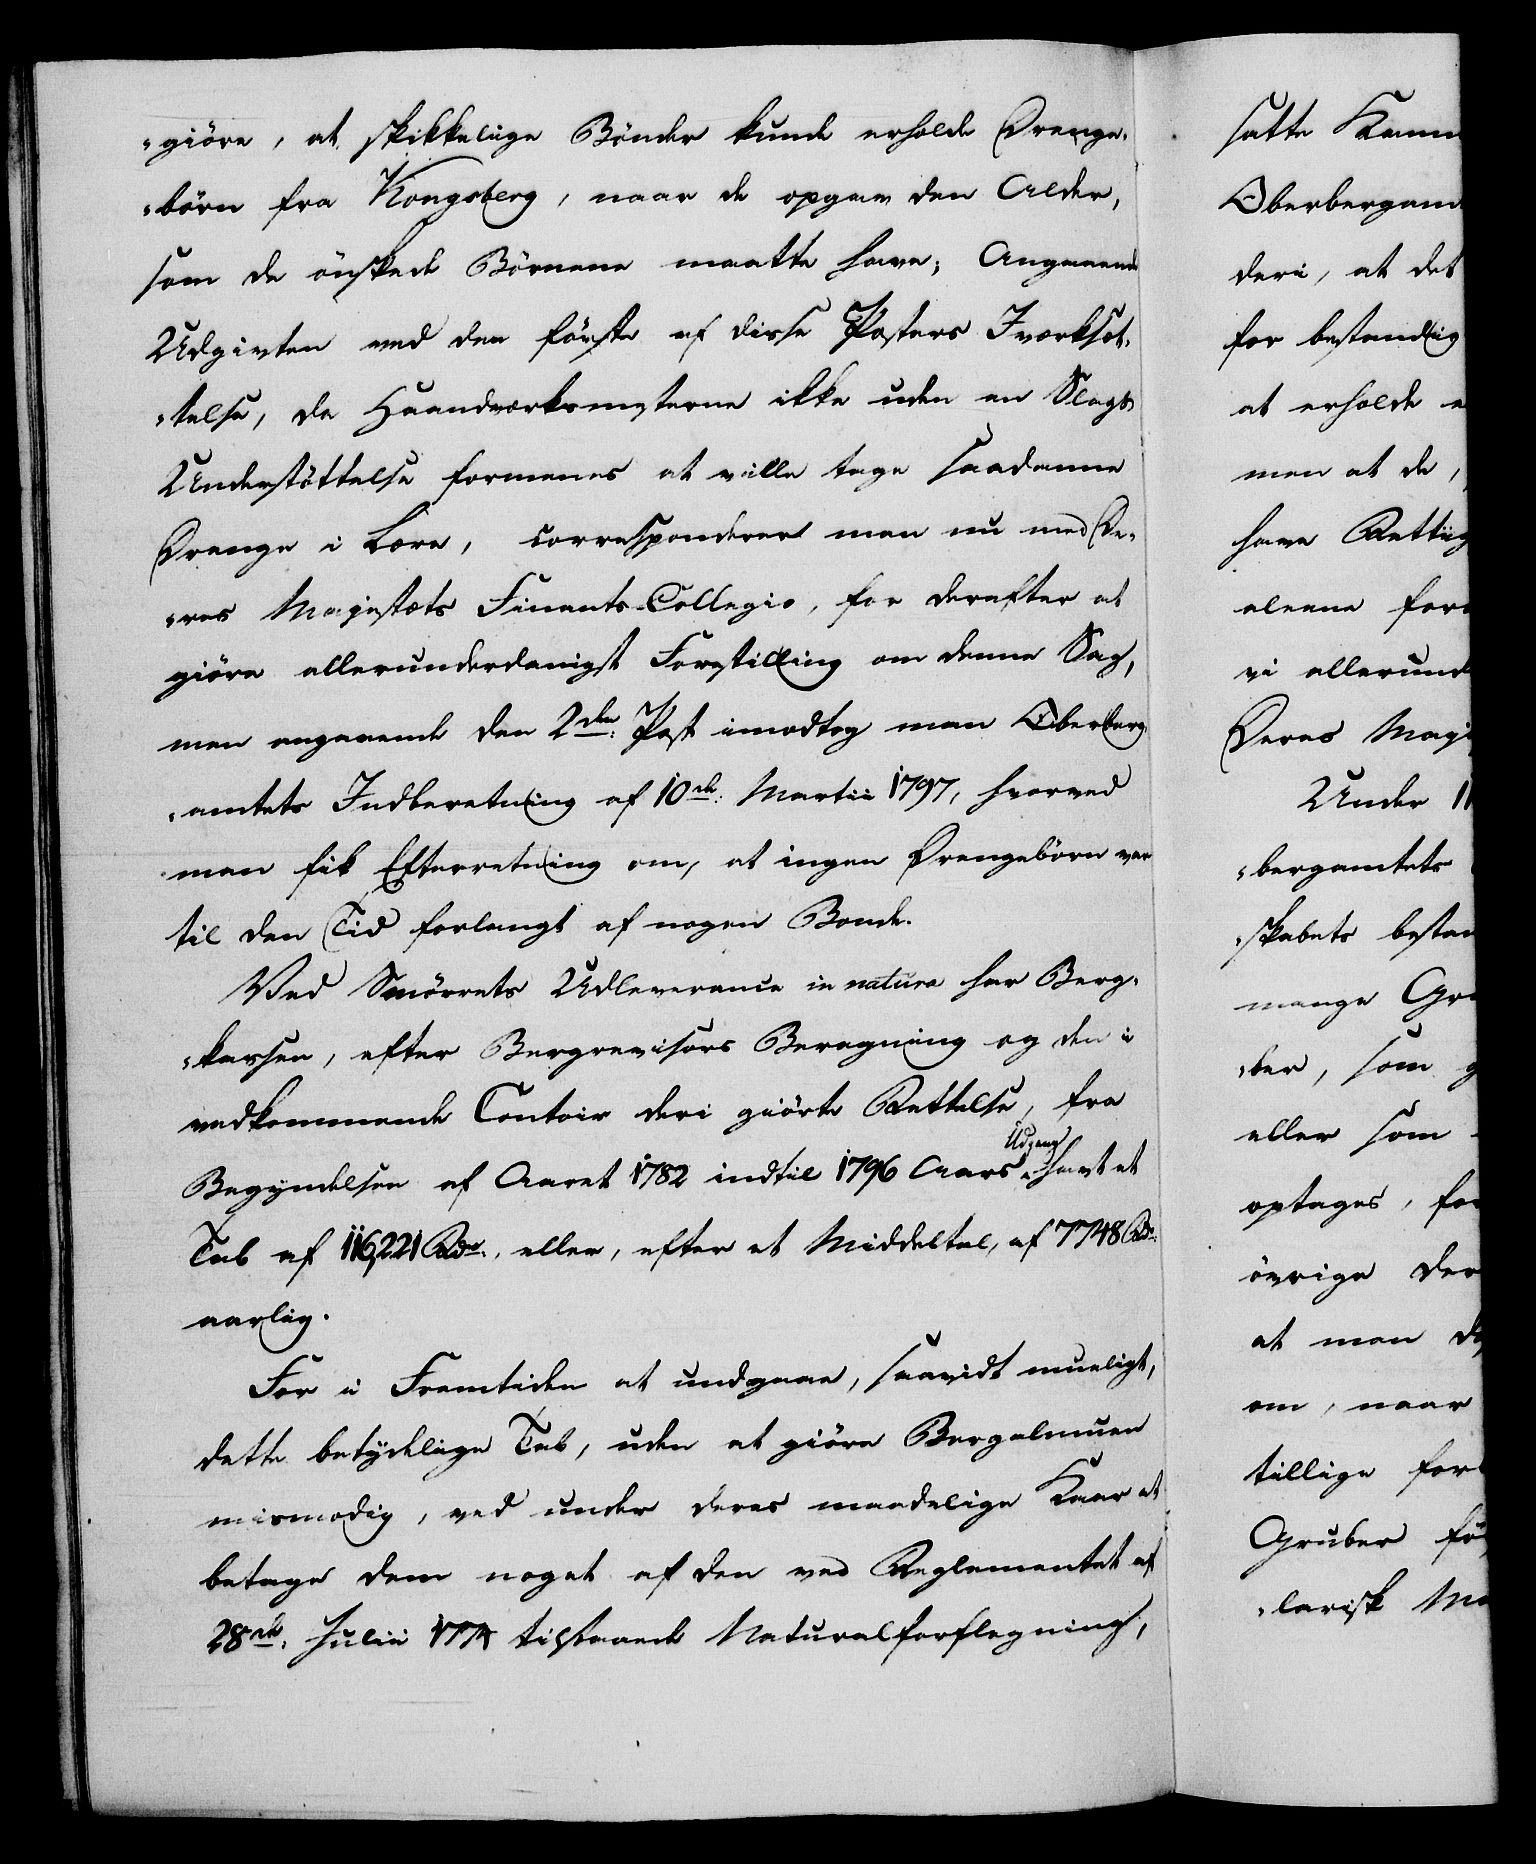 "giöre, at skikkelige Bönder kunde erholde Drenge-
"börn fra Kongsberg, naar de opgav den Alder,
som de önskede Börnene maatte have; Angaaende
Udgivten ved den förste af disse Posters Iværksæt-
"telse, da Haandværksmesterne ikke uden en Slags
Understöttelse formenes at ville tage saadanne
Drenge i Lære, corresponderer man nu med De-
"res Majestæts Finants-Collegio, for derefter at
giöre allerunderdanigst Forestilling om denne Sag,
men angaaende den 2den Post imodtog man Oberberg-
"amtets Indberetning af 10de Martii 1797, hvorved
man fik Efterretning om, at ingen Drengebörn var
til den Tid forlangt af nogen Bonde.
Ved Smörrets Udleverance in natura har Berg-
"kassen, efter Bergrevisors Beregning og den i
vedkommende Contoir deri giörte Rettelse, fra
Begyndelsen af Aaret 1782 indtil 1796 Aars Udgang havt et
Tab af 116,221 Rdr., eller, efter et Middeltal, af 7748 Rdr.
aarlig.
For i Fremtiden at undgaae, saavidt mueligt,
dette betydelige Tab, uden at giöre Bergalmuen
mismodig, ved under deres maadelige Kaar at
betage dem noget af den ved Reglementet af
28de Julii 1774 tilstaaede Naturalforflegning,
satte Kamm
Oberbergam
deri, at det
for bestandig
at erholde e
men at de,
have Rettig
alene for
vi allerund
Deres Maj
Under 11
"bergamtets
"skabets bestan
mange Gru
"ber, som g
eller som
optages, for
övrige der
at man
om, naar
tillige for
Gruber fö
"larisk Ma